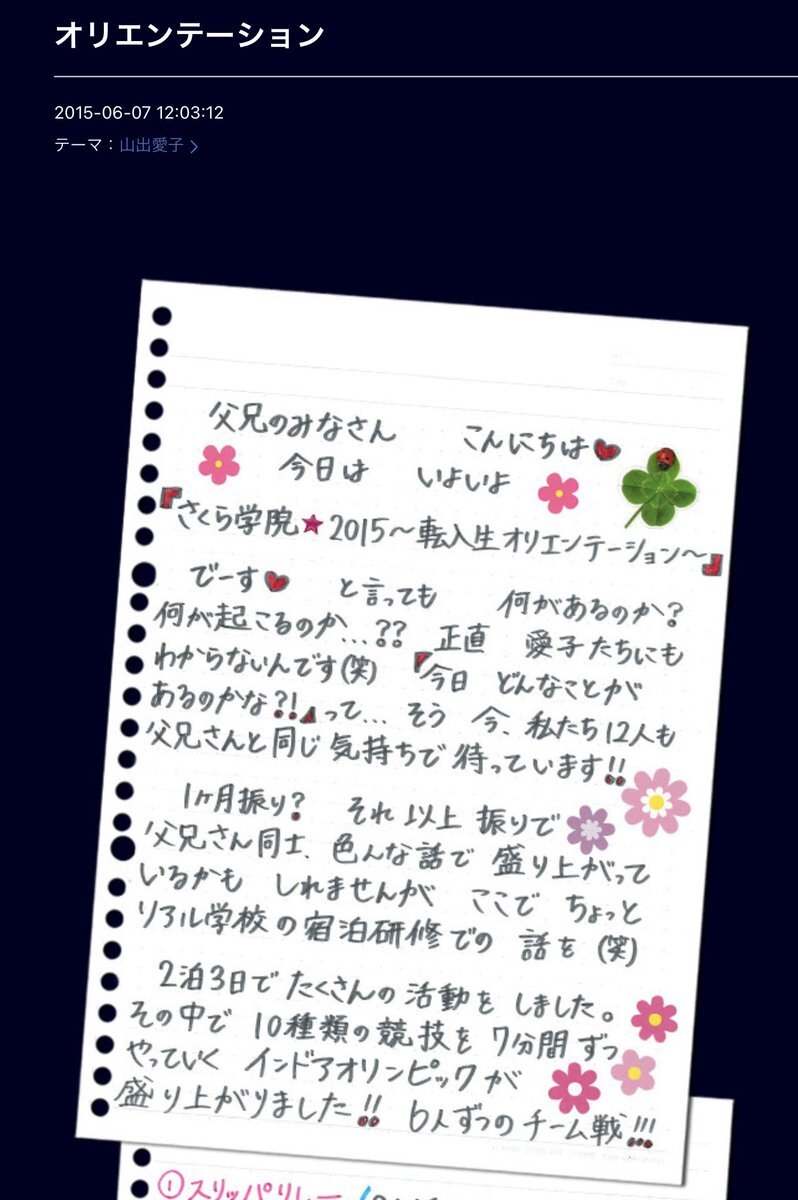 オリエンテーション
2015-06-07 12:03:12
テーマ：山出愛子 >
父兄のみなさん こんにちは
今日は いよいよ
『さくら学院★2015〜転入生オリエンテーション〜』
でーす と言っても 何があるのか?
何が起こるのか...?? 正直 愛子たちにも
わからないんです(笑) 『今日 どんなことが
あるのかな?!』って... そう 今、私たち12人も
父兄さんと同じ気持ちで待っています!!
1ヶ月振り? それ以上振りで
父兄さん同士、色んな話で盛り上がって
いるかも しれませんが ここで ちょっと
リアル学校の宿泊研修での 話を (笑)
2泊3日でたくさんの活動を しました。
その中で 10種類の競技を 7分間ずつ
やっていく インドアオリンピックが
盛り上がりました!! 6人ずつのチーム戦!!!
①スリッパリレー